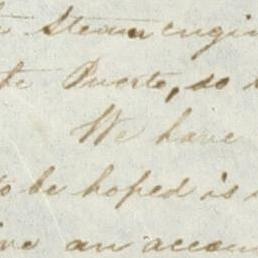 Steam engin
te Puerto, so
We have
to be hoped is
ive an accoun